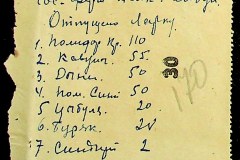 Отпущено Ларку.
1. Помидор Кр. 110
2. Кавуны. 55.
3. Дыни. 50
4. Пом. Синий 50
5. Цыбуля. 20.
6. Буряк. 20
7. 2
30
170